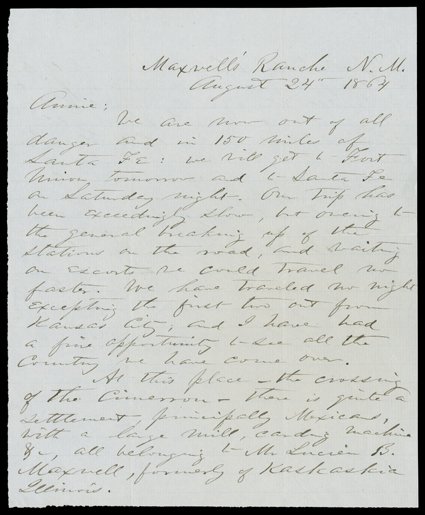 Maxwell's Ranche N.M.
August 24th 1864
Annie:
We are now out of all
danger and in 150 miles of
Santa Fe: we will get to Fort
Union tomorrow and to Santa Fe
on Saturday night. Our trip has
been exceedingly slow, but owing to
the general breaking up of the
stations on the road, and waiting
on Escorts we could travel no
faster. We have traveled no night
excepting the first two out from
Kansas City, and I have had
a fine opportunity to see all the
Country we have come over.
At this place - the crossing
of the Cimerron - there is quite a
settlement - principally Mexicans,
with a large mill, carding machine
&c, all belonging to Mr Lucien B.
Maxwell, formerly of Kaskaskia
Illinois.